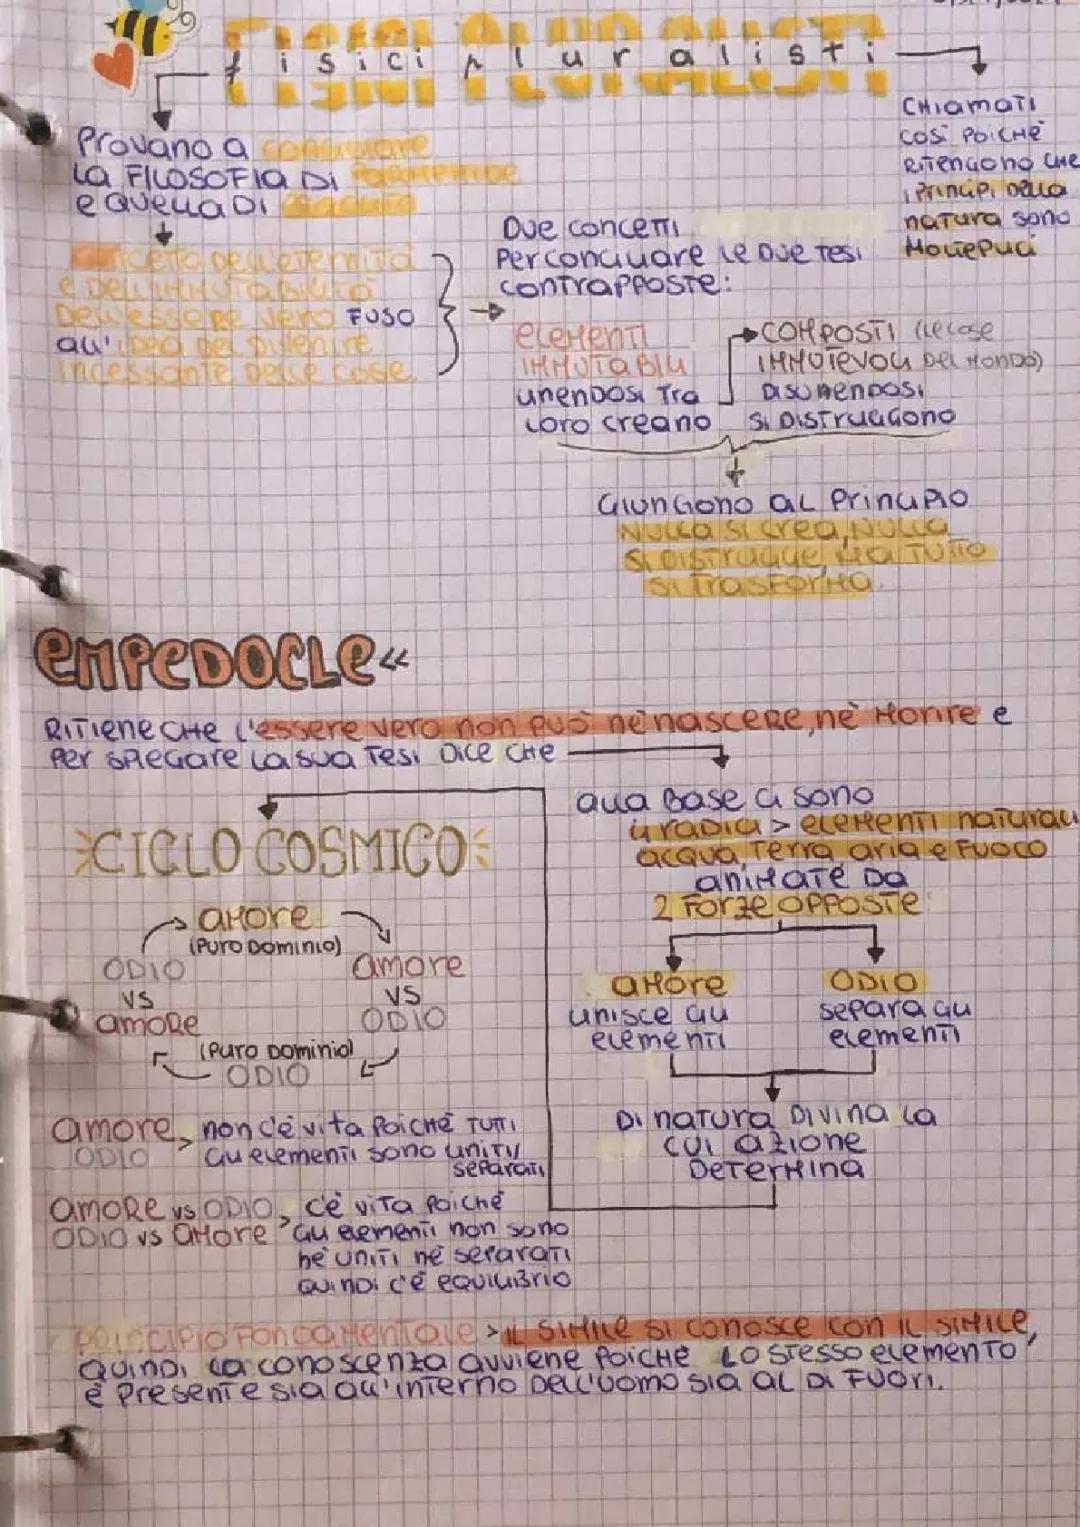 FISICI PLURALISTI
fisici pluralisti
Provano a conciliare
La FILOSOFIA DI Parmenide
e quella DI Eraclito
concetto dell'eternità
e dell'immutabilità
Dell'essere vero FUSO
all'idea del divenire
incessante delle cose.
CHiamati
così poiché
ritengono che
i principi della
natura sono
molteplici
Due concetti
Per conciliare le due tesi
contrapposte:
elementi
immutabili
unendosi tra
loro creano
COMPOSTI (le cose
immutevoli del mondo)
disunendosi
si distruggono
Giungono al principio
Nulla si crea, nulla
si distrugge, ma tutto
si trasforma.
EMPEDOCLE «
Ritiene che l'essere vero non può né nascere, né morire e
per spiegare la sua tesi dice che
alla base ci sono
4 radici > elementi naturali
acqua, terra, aria e fuoco
animate da
2 forze opposte
amore
unisce gli
elementi
ODIO
separa gli
elementi
Di natura divina la
cui azione
determina
CICLO COSMICO
amore
(Puro dominio)
ODIO
vs
amore
amore
vs
ODIO
(Puro dominio)
ODIO
amore
ODIO
> non c'è vita poiché tutti
gli elementi sono uniti/
separati
amore vs ODIO
ODIO vs amore
> c'è vita poiché
gli elementi non sono
né uniti né separati
quindi c'è equilibrio
principio fondamentale > il simile si conosce con il simile,
quindi la conoscenza avviene poiché lo stesso elemento
è presente sia all'interno dell'uomo sia al di fuori.